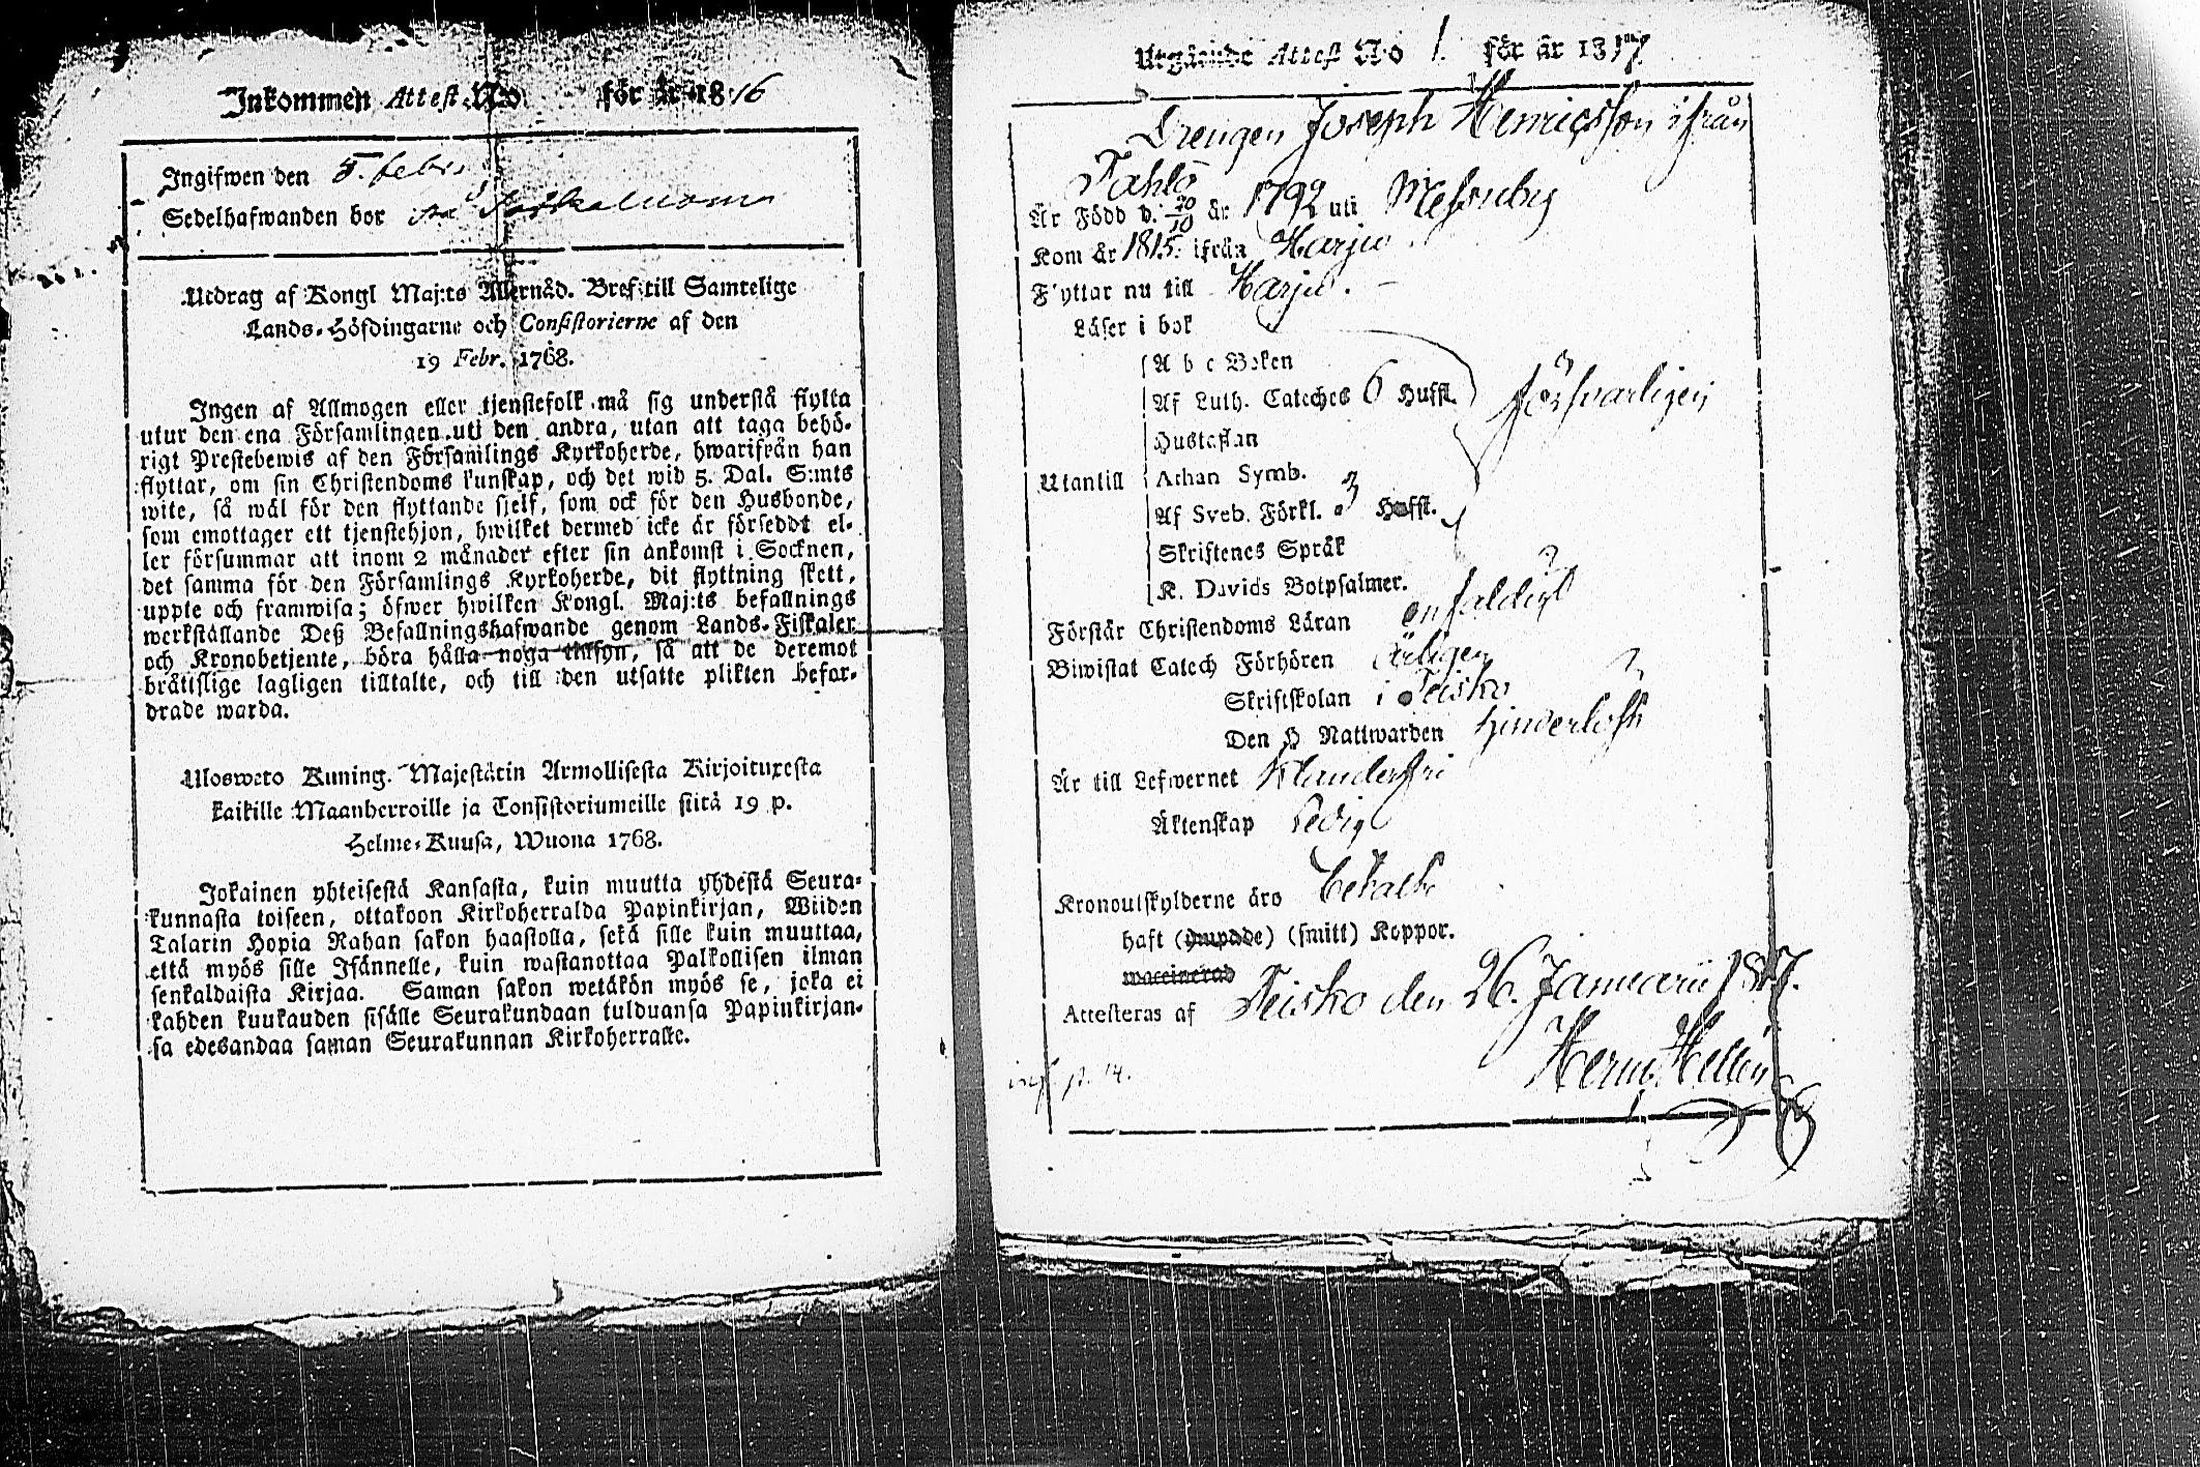 Inkommen Attest N:o för år 1816
Ingifwen den 5. febr.
Sedelhafwanden bor
Utdrag af Kongl Maj:ts Allernåd. Bref till Samtelige
Lands-Höfdingarne och Consistorierne af den
19 Febr. 1768.
Ingen af Allmogen eller tjenstefolk må sig understå flytta
utur den ena Församlingen uti den andra, utan att taga behö-
rigt Prestebewis af den Församlings Kyrkoherde, hwarifrån han
flyttar, om sin Christendoms kunskap, och det wid 5. Dal. S:mts
wite, så wäl för den flyttande sjelf, som ock för den Husbonde,
som emottager ett tjenstehjon, hwilket dermed icke är försedt el-
ler försummar att inom 2 månader efter sin ankomst i Socknen,
det samma för den Församlings Kyrkoherde, dit flyttning skett,
uppte och framwisa; öfwer hwilken Kongl. Maj:ts befallnings
werkställande Deß Befallningshafwande genom Lands-Fiskaler
och Kronobetjente, böra hålla noga tillsyn, så att de deremot
bråtislige lagligen tilltalte, och till den utsatte plikten befor-
drade warda.
Uloswето Kuning. Majestätin Armollisesta Kirjoituxesta
kaikille Maanherroille ja Consistoriumeille siitä 19 p.
Helme-Kuusa, Wuona 1768.
Jokainen yhteisestä Kansasta, kuin muutta yhdestä Seura-
kunnasta toiseen, ottakoon Kirkoherralda Papinkirjan, Wiiden
Talarin Hopia Rahan sakon haastolla, sekä sille kuin muuttaa,
että myös sille Isännelle, kuin wastanottaa Palkollisen ilman
senkaldaista Kirjaa. Saman sakon wetäkön myös se, joka ei
kahden kuukauden sisälle Seurakundaan tulduansa Papinkirjan-
sa edesandaa saman Seurakunnan Kirkoherralle.
Utgående Attest No 1. för år 1817
Drengen Joseph Henricsson ifrån
Pahlo
Är Född d. 20/10 år 1792 uti Messuby
Kom år 1815. ifrån Harju
Flyttar nu till Harju.
Läser i bok
A b c Boken
Af Luth. Cateches 6 Hufst. försvarligen
Hustaflan
Utantill Athan Symb.
Af Sveb. Förkl. 3 Hufst.
Skriftenes Språk
K. Davids Botpsalmer.
Förstår Christendoms Läran enfaldigt
Biwistat Catech Förhören ärligen
Skriftskolan i Teisko
Den H Nattwarden hinderlöst
Är till Lefwernet klanderfri
Äktenskap ledig
Kronoutskylderne äro betalte
haft (ympade) (smitt) Koppor.
waccinerad
Attesteras af Teisko den 26. Januarii 1817.
Henr. Hellén
p. 14.